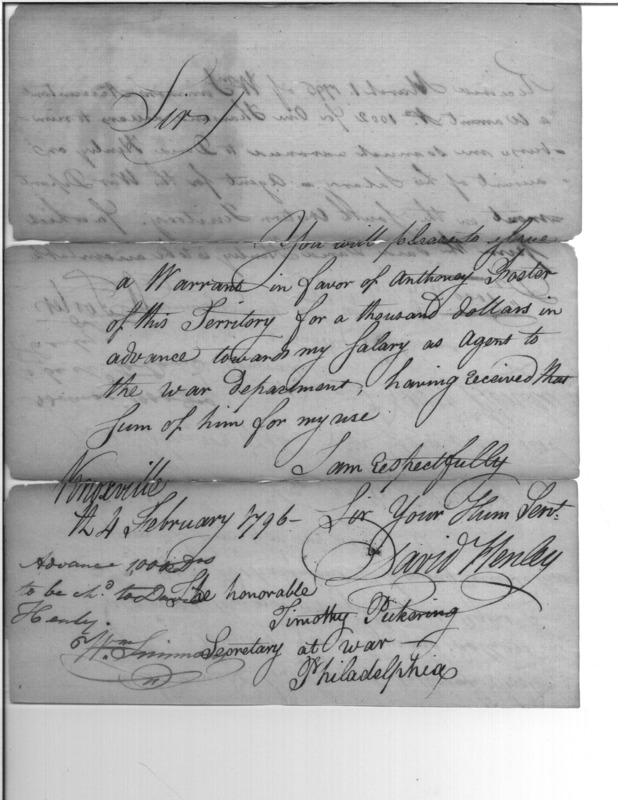 Sir
You will please to issue
a Warrant in favor of Anthoney Foster
of this Territory for a thousand dollars in
advance towards my Salary as Agent to
the war department, having received that
Sum of him for my use
I am respectfully
Knoxville
the 4 February 1796 - Sir Your Hum Servt.
David Henley
Advance 1000 Drs
to be chd. to David
Henly.
Wm. Simmons
The honorable
Timothy Pickering
Secretary at war
Philadelphia